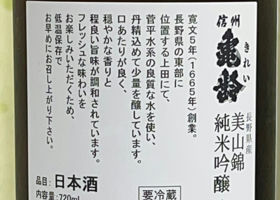 信州
亀齢
きれい
長野県産
美山錦
純米吟醸
寛文5年(1665年)創業。
長野県の東部に
位置する上田にて、
菅平水系の良質な水を使い、
丹精込めて少量を醸しています。
口あたりが良く、
穏やかな香りと
程良い旨味が調和されています。
フレッシュな味わいを
お楽しみいただくため、
低温保存で
お早めにお召し上がり下さい。
品目:日本酒
内容量:720ml
要冷蔵